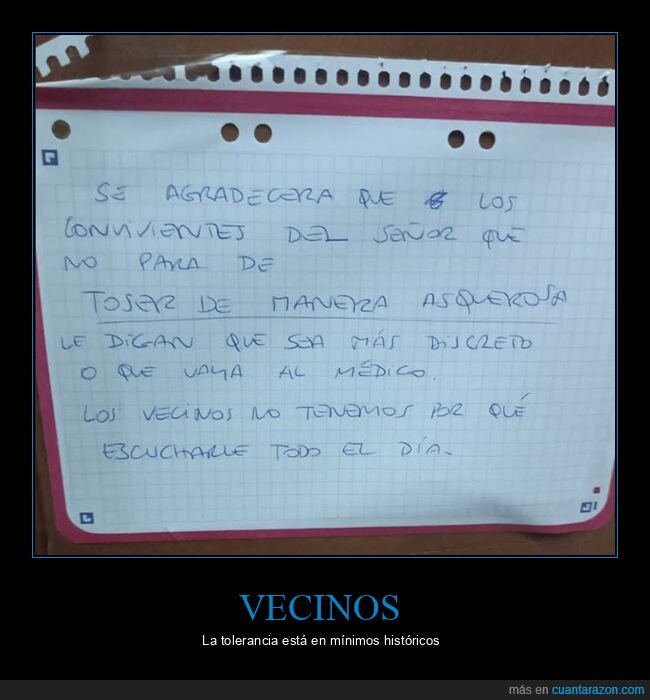 SE AGRADECERA QUE LOS
CONVIVIENTES DEL SEÑOR QUE
NO PARA DE
TOSER DE MANERA ASQUEROSA
LE DIGAN QUE SEA MÁS DISCRETO
O QUE VAYA AL MÉDICO.
LOS VECINOS NO TENEMOS POR QUÉ
ESCUCHARLE TODO EL DÍA.
VECINOS
La tolerancia está en mínimos históricos
más en cuantarazon.com